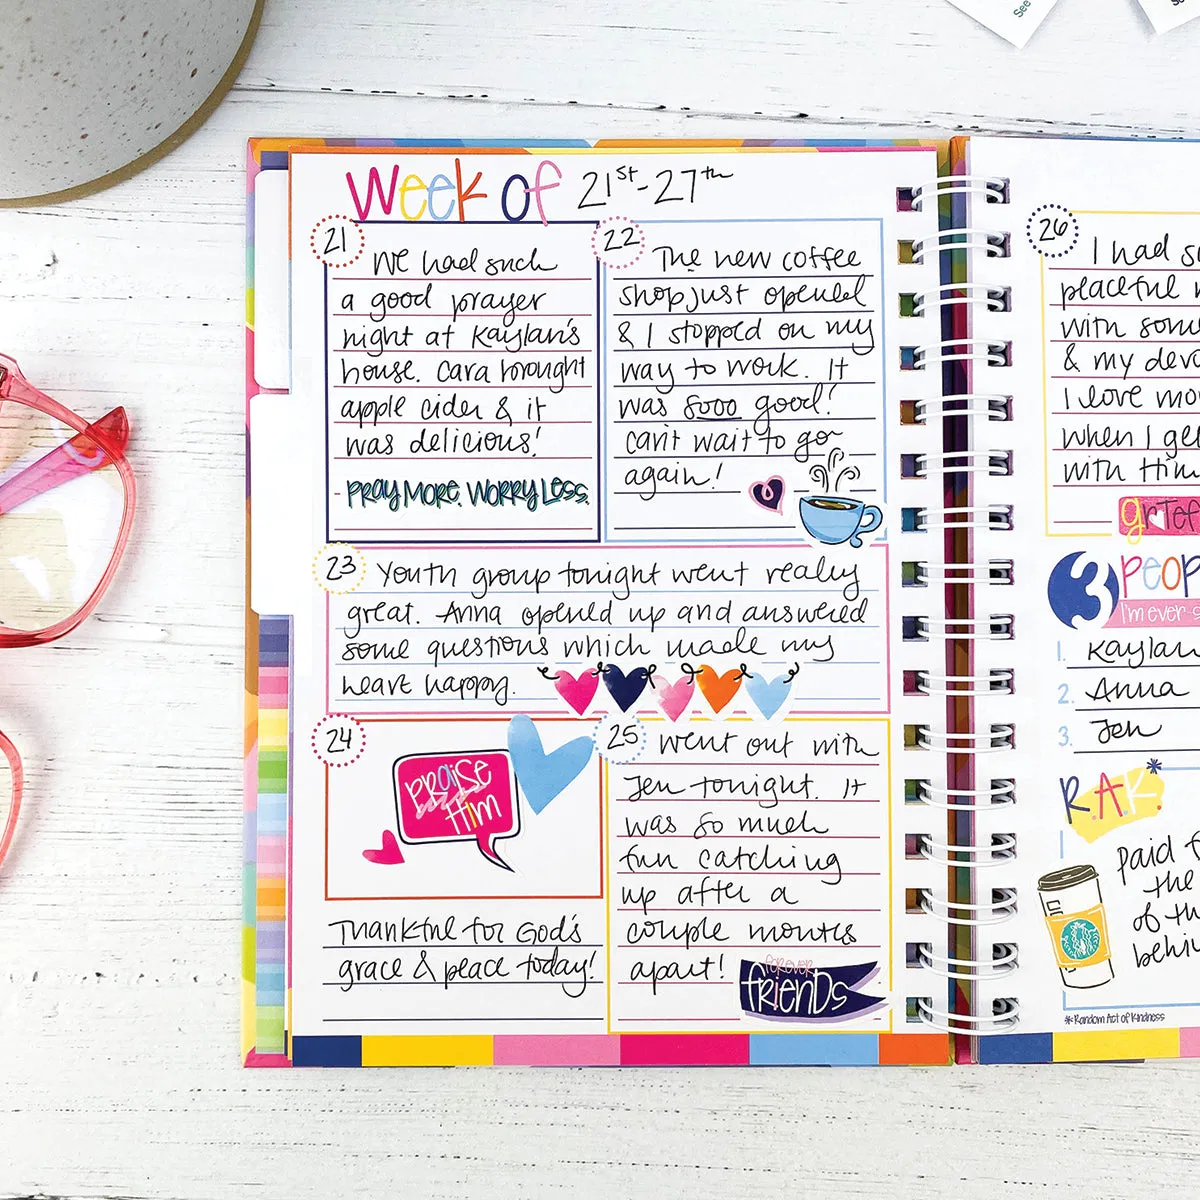 See
Week of 21st-27th
21
We had such
a good prayer
night at Kaylan's
house. Cara brought
apple cider & it
was delicious!
PRAY MORE. WORRY LESS.
22
The new coffee
shop just opened
& I stopped on my
way to work. It
was sooo good!
can't wait to go
again!
23
Youth group tonight went really
great. Anna opened up and answered
some questions which made my
heart happy.
24
PRAISE
Him
Thankful for God's
grace & peace today!
25
Went out with
Jen tonight. It
was so much
fun catching
up after a
couple months
apart!
FOREVER
FRIENDS
26
I had
peaceful
with
& my
I love
when I
with Him
3 PEOP
I'm ever
1. Kaylan
2. Anna
3. Jen
R.A.K.*
Paid
the
of
* Random Act of Kindness